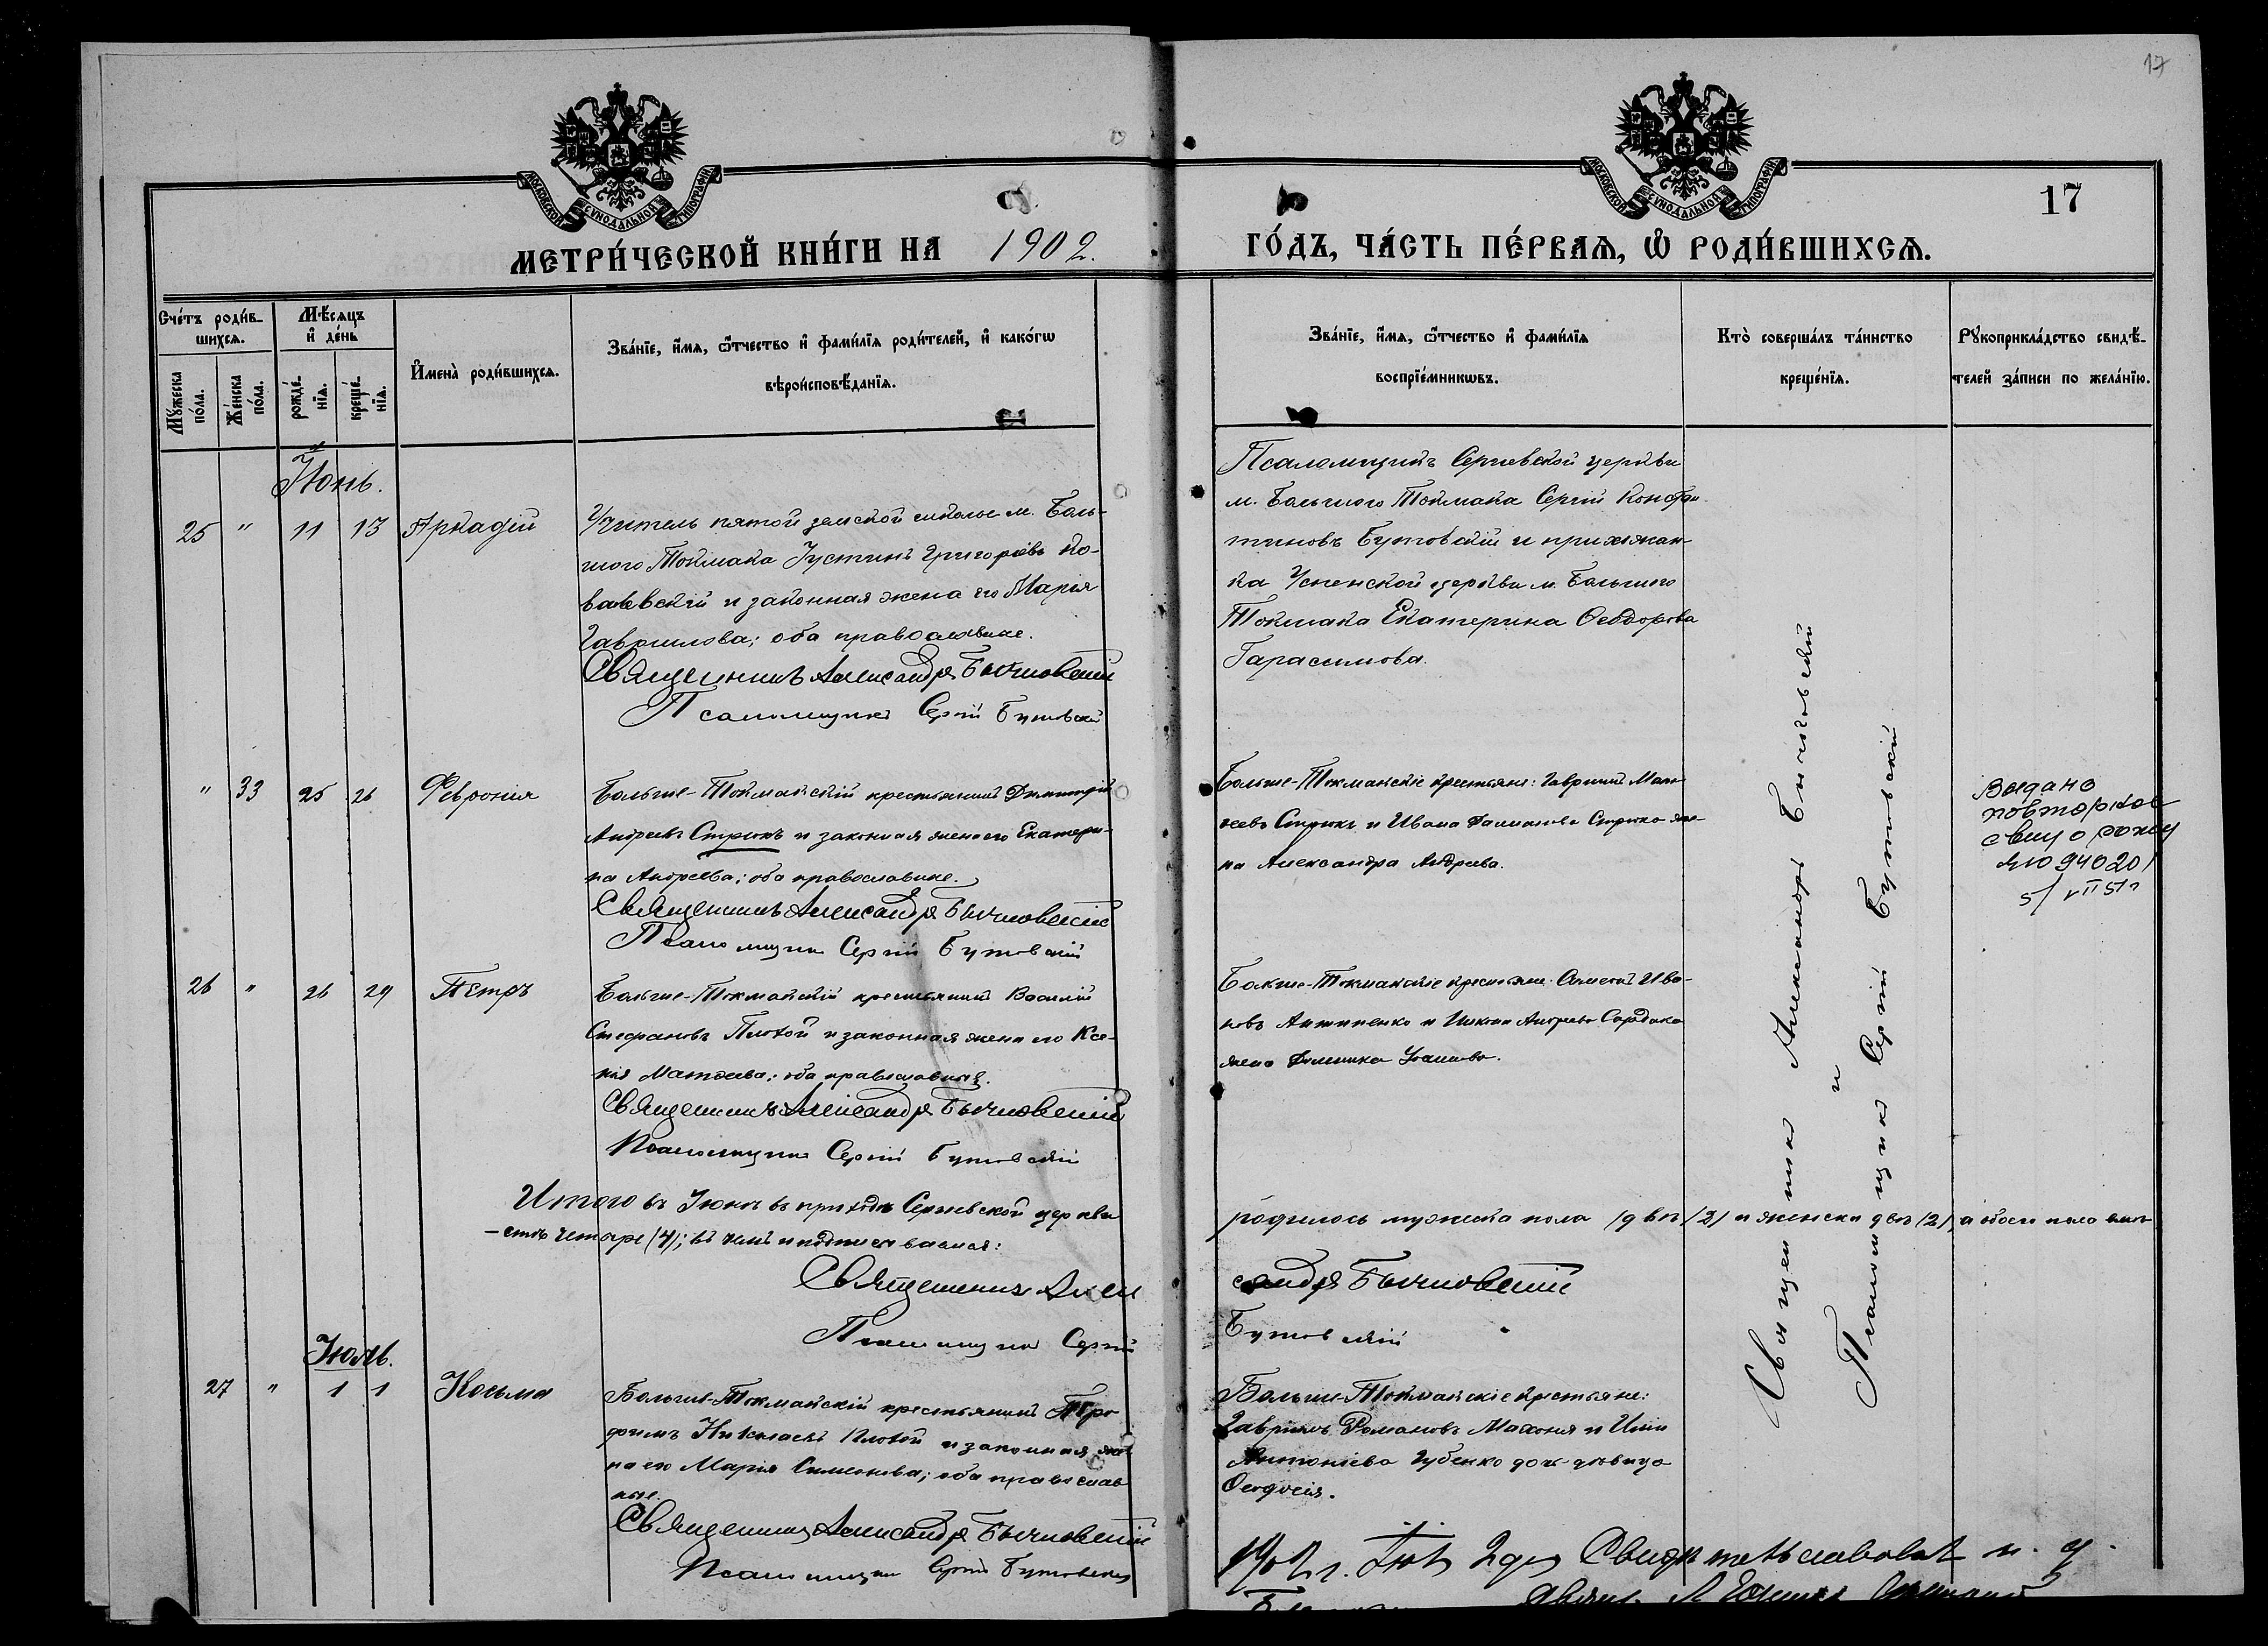 17
МОСКОВСКОЙ СѴНОДАЛЬНОЙ ТИПОГРАФІИ
МОСКОВСКОЙ СѴНОДАЛЬНОЙ ТИПОГРАФІИ
17
МЕТРИ́ЧЕСКОЙ КНИ́ГИ НА 1902. ГО́ДЪ, ЧА́СТЬ ПЕ́РВАѦ, Ѡ҆ РОДИ́ВШИХСѦ.
Сче́тъ роди́в-
шихсѧ.
Мꙋ́жеска
по́ла.
Же́нска
по́ла.
Мѣ́сѧцъ
и҆ де́нь
рожде́-
нїѧ.
креще́-
нїѧ.
И҆мена̀ роди́вшихсѧ.
Зва́нїе, и҆́мѧ, ѻ҆́тчество и҆ фами́лїѧ роди́телей, и҆ како́гѡ
вѣроисповѣ́данїѧ.
Зва́нїе, и҆́мѧ, ѻ҆́тчество и҆ фами́лїѧ
воспрїе́мникѡвъ.
Кто̀ соверша́лъ та́инство
креще́нїѧ.
Рꙋкоприкла́дство свидѣ́-
телей за́писи по жела́нїю.
Іюнь.
25 " 11 13 Аркадій
Учитель пятой земской школы м. Боль-
шого Токмака Іустинъ Григорьевъ Ко-
валевскій и законная жена его Марія
Гавриилова; оба православные.
Священникъ Александръ Бычковскій
Псаломщикъ Сергій Бутовскій
Псаломщикъ Сергіевской церкви
м. Большого Токмака Сергій Констан-
тиновъ Бутовскій и прихожан-
ка Успенской церкви м. Большого
Токмака Екатерина Ѳеодорова
Гарасимова.
" 33 25 26 Феврония
Больше-Токмакскій крестьянинъ Димитрій
Андреевъ Стрюкъ и законная жена его Екатери-
на Андреева; оба православные.
Священникъ Александръ Бычковскій
Псаломщикъ Сергій Бутовскій
Больше-Токмакскіе крестьяне: Гавриилъ Мат-
ѳеевъ Стрюкъ и Ивана Стрюка же-
на Александра Андреева.
Выдано
повторное
свид о рожд
ЯЮ 94020
5/VII 51г
26 " 26 29 Петръ
Больше-Токмакскій крестьянинъ Василій
Стефановъ Плохой и законная жена его Ксе-
нія Матѳеева; оба православные.
Священникъ Александръ Бычковскій
Псаломщикъ Сергій Бутовскій
Больше-Токмакскіе крестьяне: Ива-
новъ Антипенко и Андреева
жена
Итого въ Іюнѣ въ приходѣ Сергіевской церкви родилось мужеска пола /двѣ /2/ и женска двѣ /2/, а обоего пола вмѣ-
-стѣ четыре (4); въ чемъ и подписываемся:
Священникъ Александръ Бычковскій
Псаломщикъ Сергій Бутовскій
Іюль.
27 " 1 1 Косьма
Больше-Токмакскій крестьянинъ Тро-
фимъ Николаевъ Плохой и законная же-
на его Марія Симонова; оба православ-
ные.
Священникъ Александръ Бычковскій
Псаломщикъ Сергій Бутовскій
Больше-Токмакскіе крестьяне:
Гавріилъ Романовъ Махоня и
Антоніева Губенко дочь дѣвица
Ѳеодосія.
Священникъ Александръ Бычковскій
и
Псаломщикъ Сергій Бутовскій